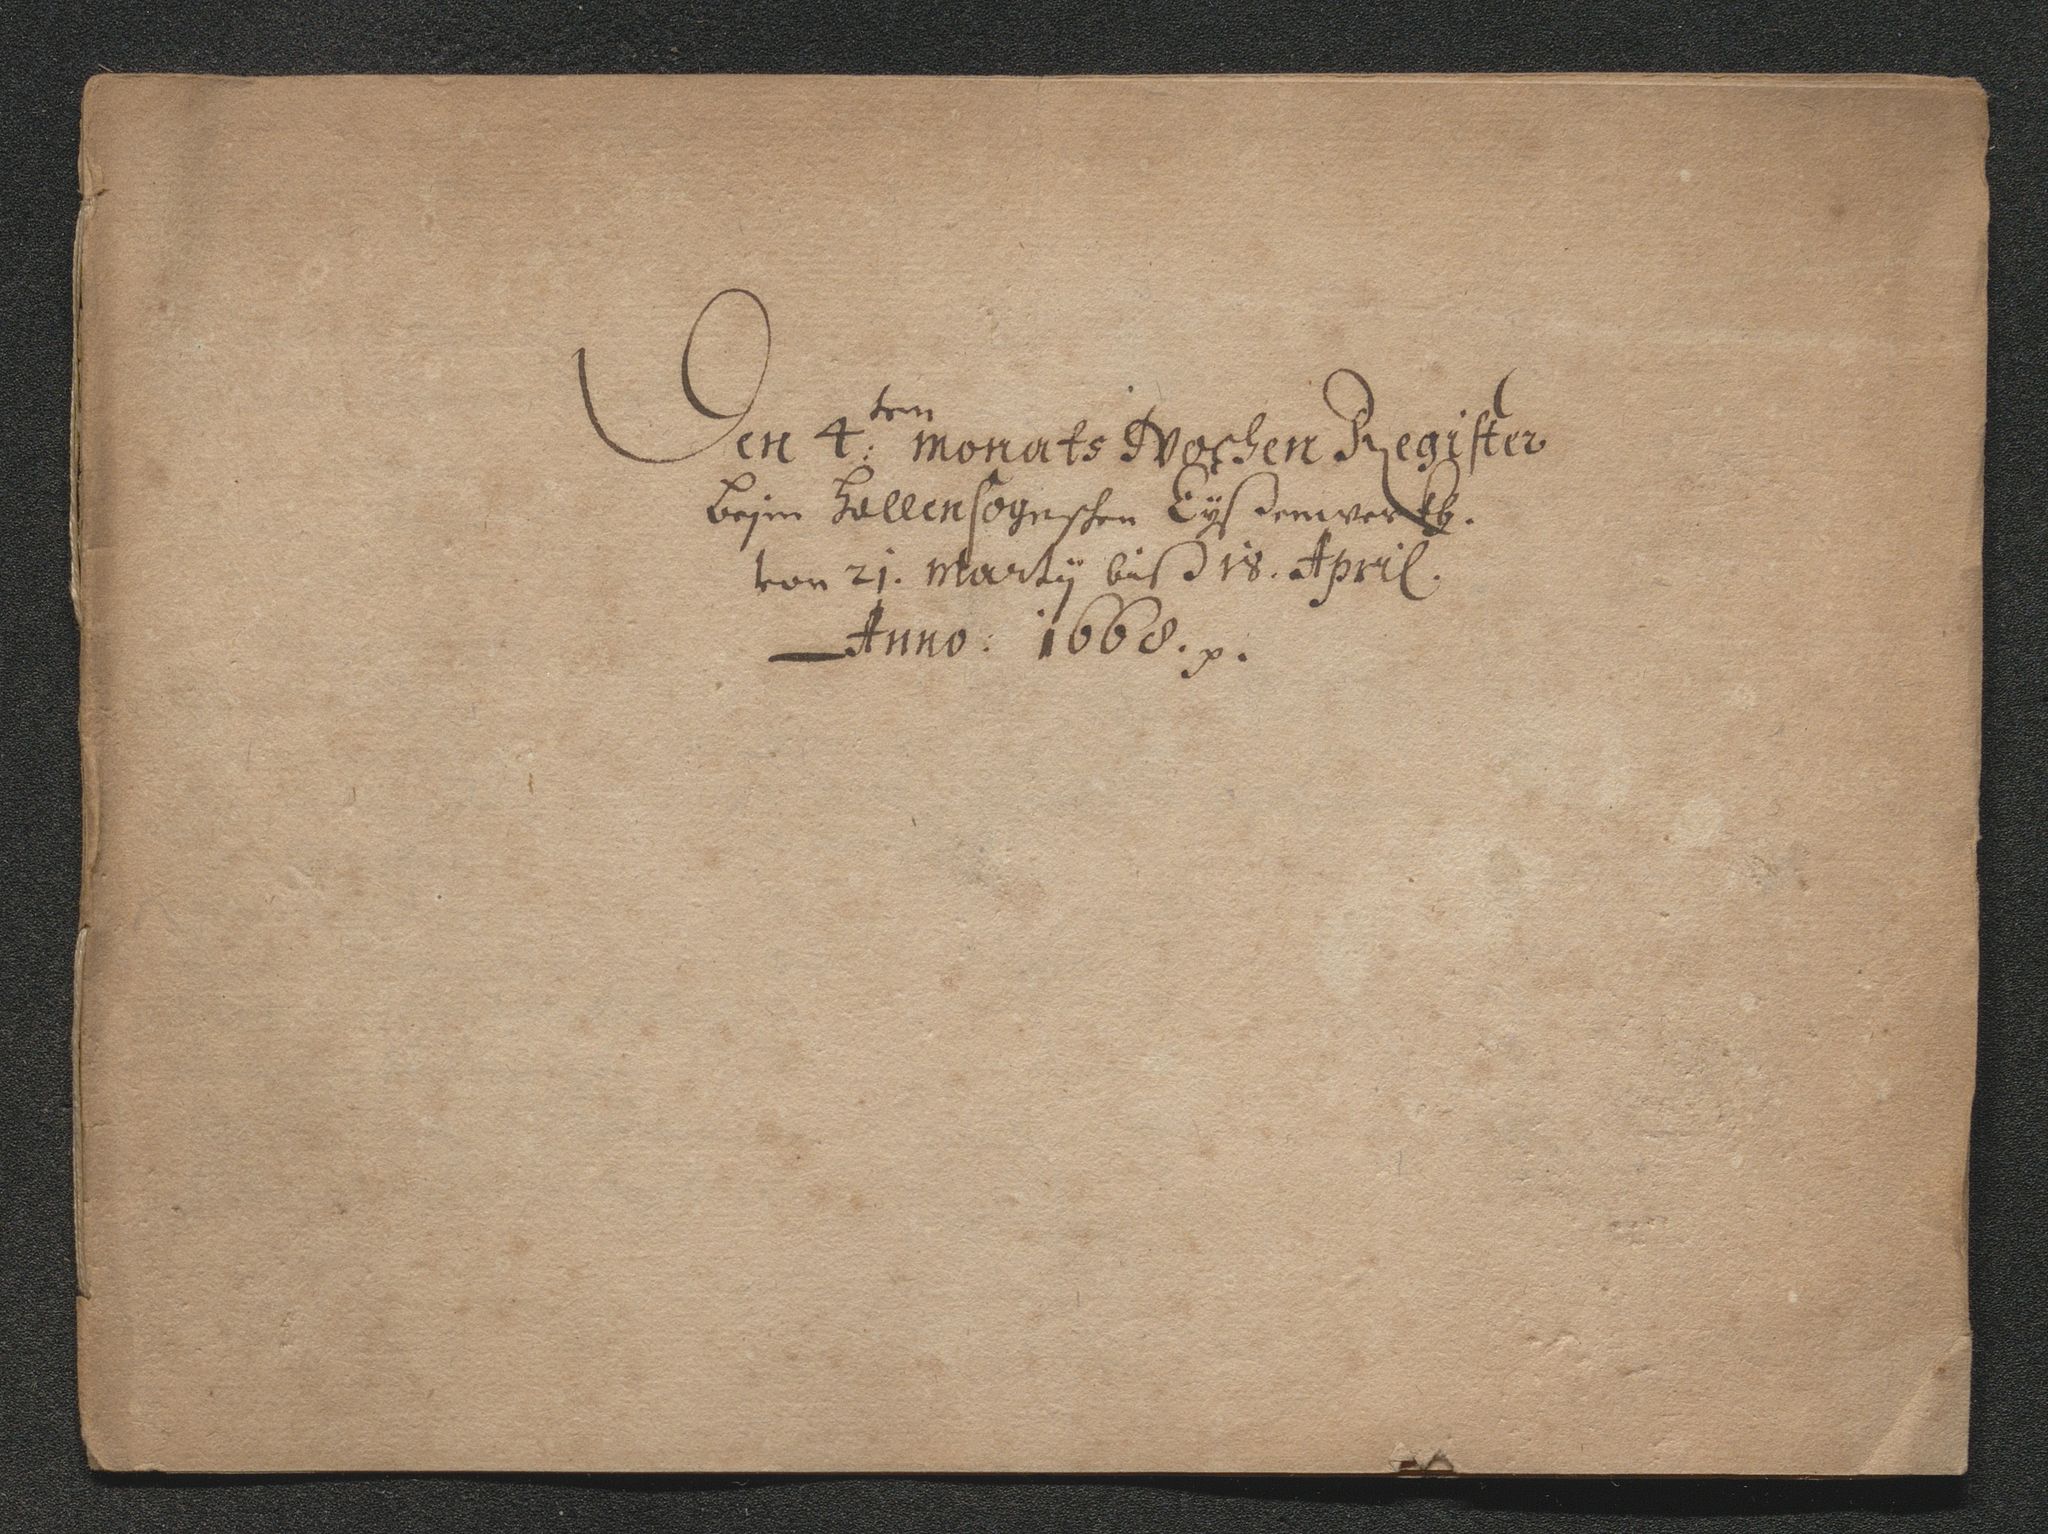 Den 4.ten Monats Wochen Register
beÿm Hallensognschen Eÿßenwerkh.
von 21. Martÿ biß 18. April.
Anno: 1668. p.